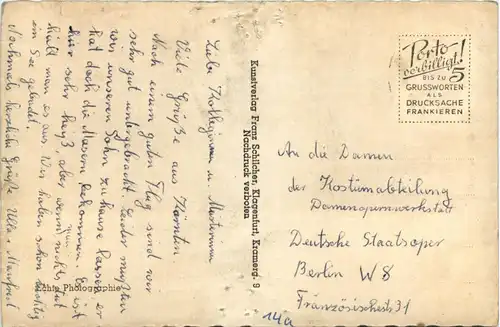 Liebe Kolleginnen u. Mesterinnen
Viele Grüße aus Kärnten
Nach einem guten Flug sind wir
sehr gut untergebracht. Leider mußten
wir unseren Sohn zu hause lassen, er
hat doch die Masern bekommen. Es ist
hier sehr heiß aber wenn man nichts tut
hält man es aus. Wir haben schon tüchtig
im See gebadet.
Nochmals herzliche Grüße Ulla u. Manfred
Echte Photographie
Kunstverlag Franz Schilcher, Klagenfurt, Kramerg. 9
Nachdruck verboten
Porto
verbilligt!
BIS ZU 5
GRUSSWORTEN
ALS
DRUCKSACHE
FRANKIEREN
An die Damen
der Kostümabteilung
Damenopernwerkstatt
Deutsche Staatsoper
Berlin W8
Französischestr. 31
14a